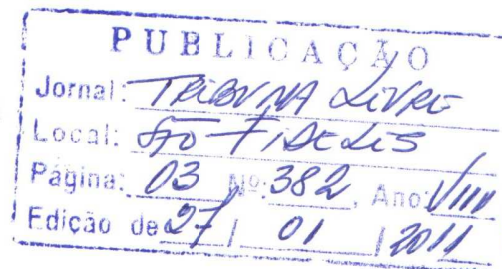 PUBLICAÇÃO
Jornal: TRIBUNA LIVRE
Local: SÃO FIDELIS
Página: 03 Nº: 382, Ano: VIII
Edição de 27 / 01 / 2011